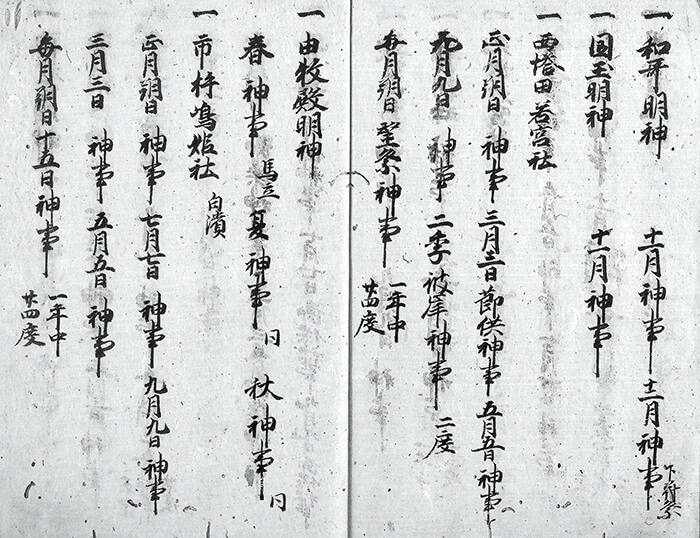 一 和哥明神 十一月神事 十二月神事
一 国玉明神 十一月神事
一 西塔田若宮社
正月朔日 神事 三月三日節供神事 五月五日神事
九月九日 神事 二季彼岸神事 二度
毎月朔日 神事 一年中 廿四度
一 由牧殿明神
春神事 馬立 夏神事 同 秋神事 同
一 市杵嶋姫社 白濱
正月朔日 神事 七月七日 神事 九月九日神事
三月三日 神事 五月五日 神事
毎月朔日十五日神事 一年中 廿四度